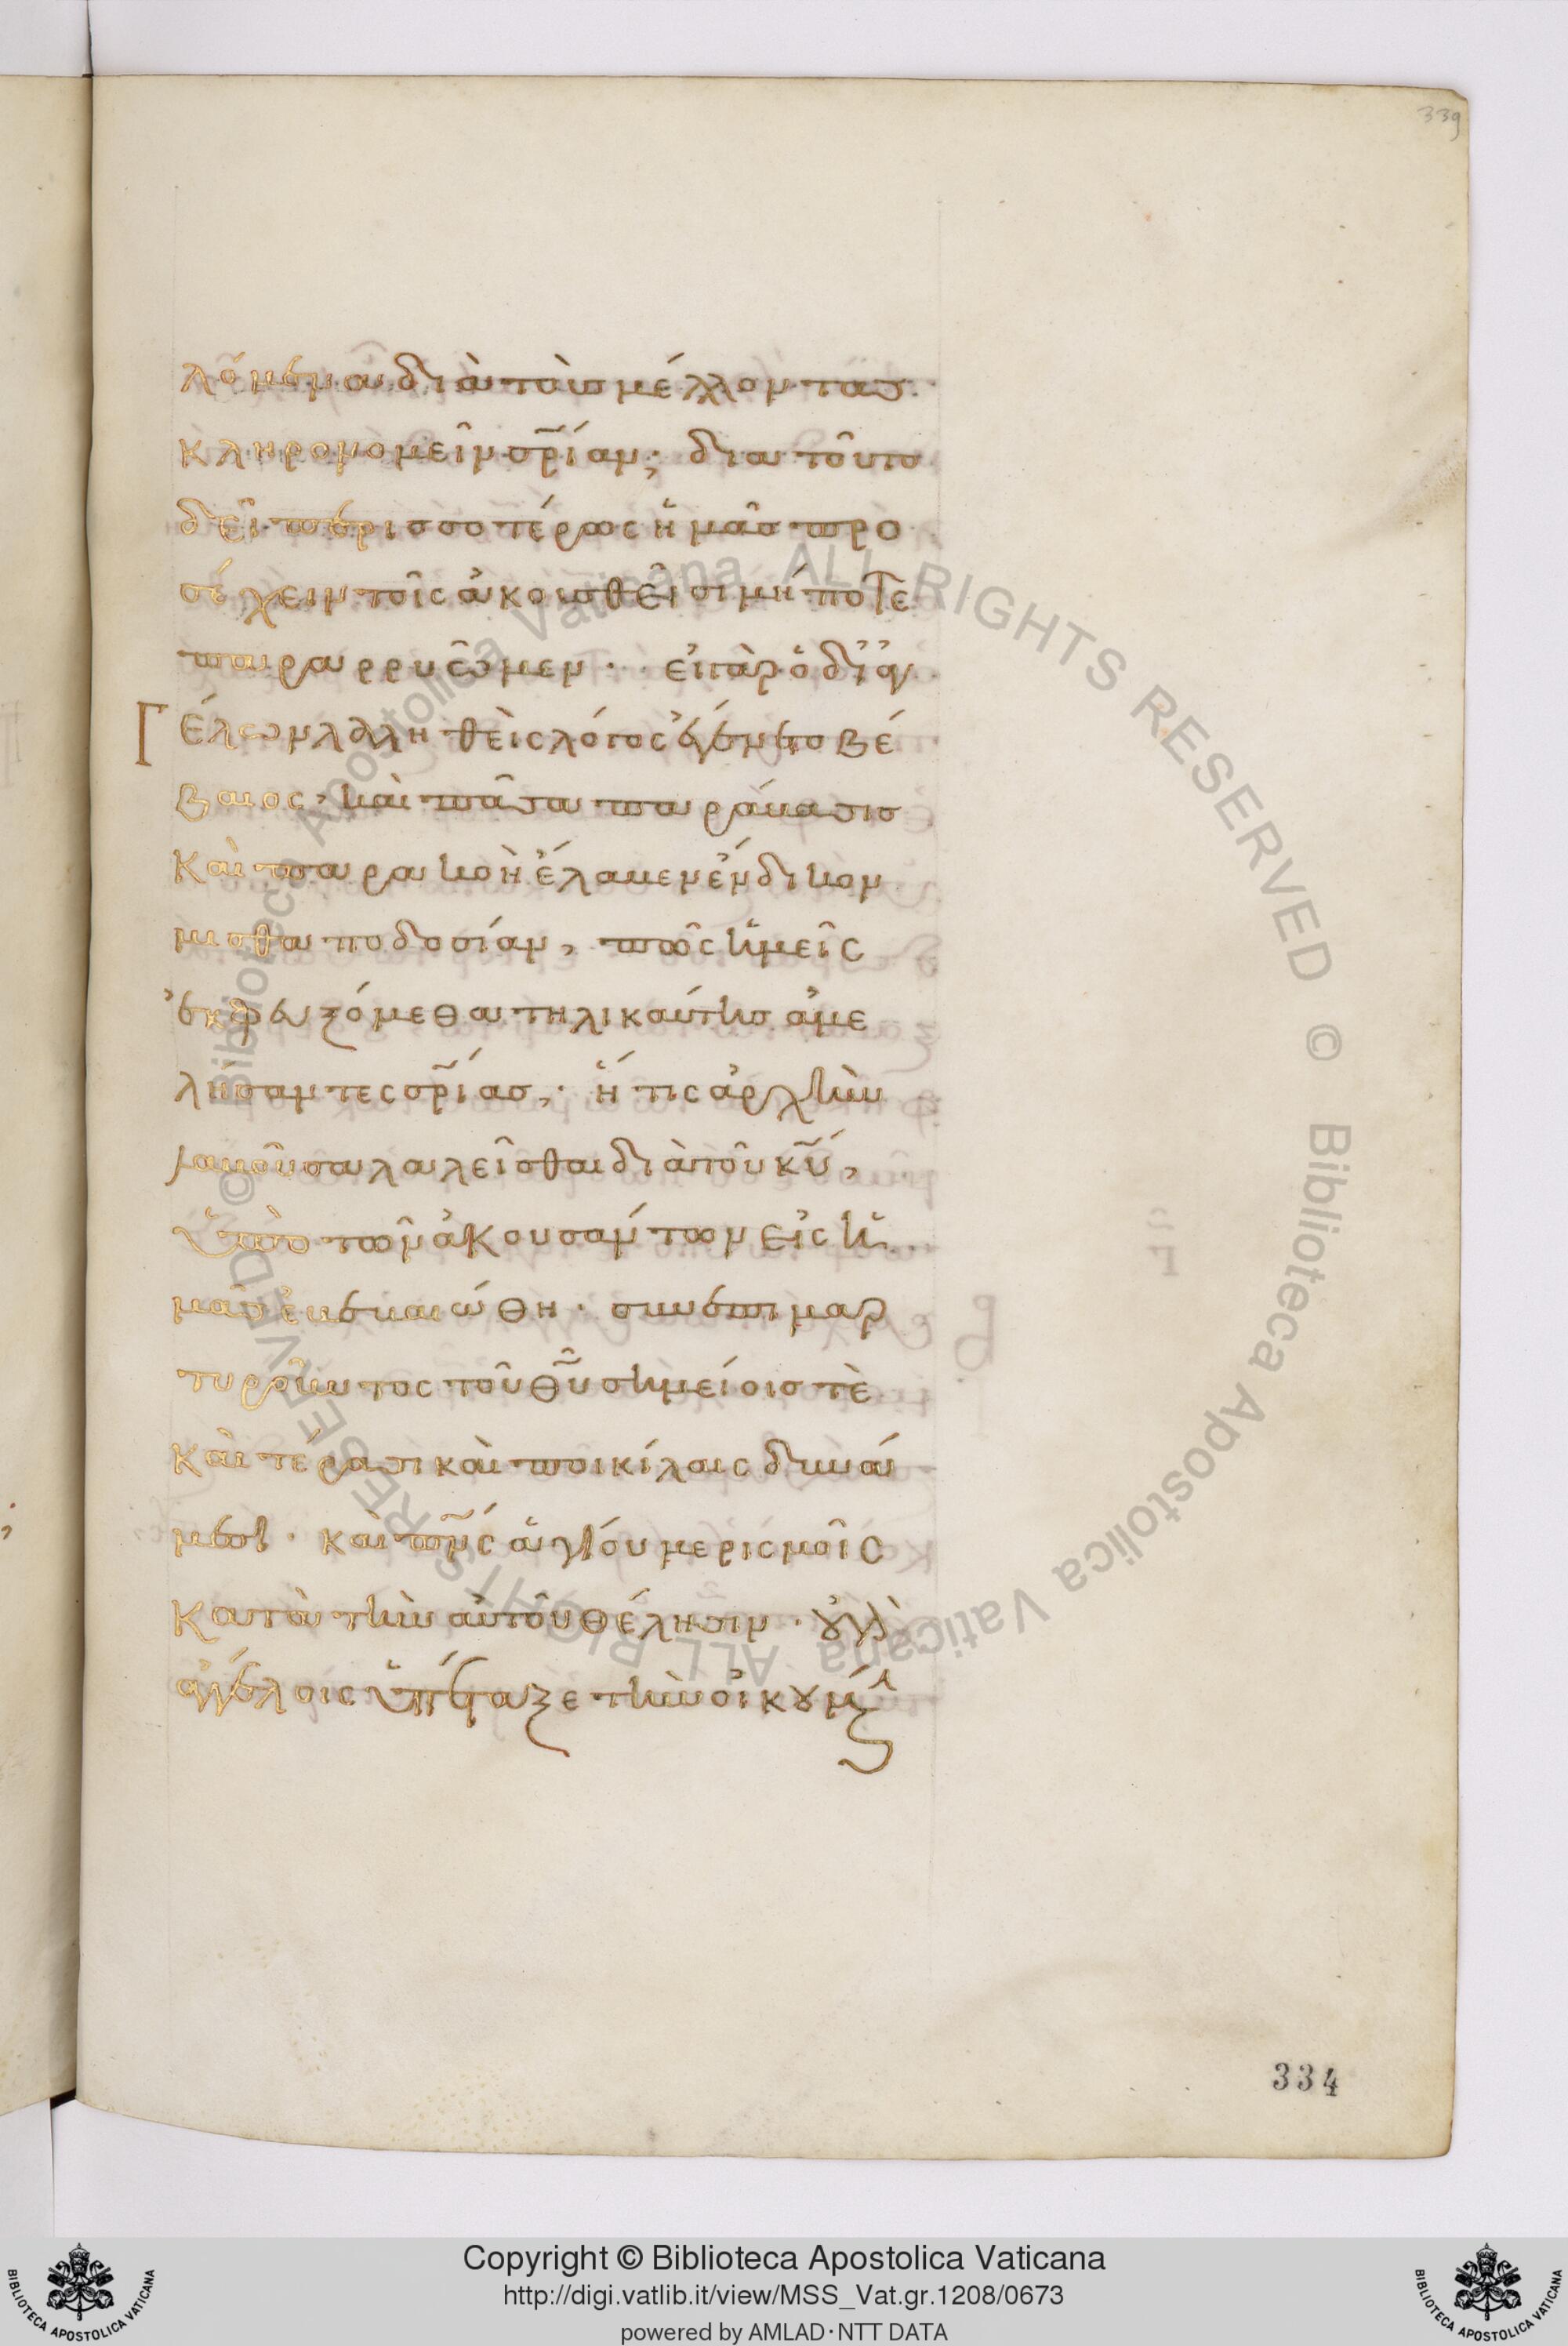 339
λόμενα διὰ τοὺς μέλλοντας
κληρονομεῖν σρ̃ίαν; δια τοῦτο
δεῖ περισσοτέρως ἡμᾶς προ
σέχειν τοῖς ἀκουσθεῖσι μήποτε
παραρρυῶμεν· εἰ γὰρ ὁ δι ἀγ
Γέλων λαληθεὶς λόγος ἐγένετο βέ
βαιος, καὶ πᾶσα παράβασις
Καὶ παρακοὴ ἔλαβεν ἔνδικον
μισθαποδοσίαν, πῶς ἡμεῖς
ἐκφευξόμεθα τηλικαύτης ἀμε
λήσαντες σρ̃ίας, ἥτις ἀρχὴν
λαβοῦσα λαλεῖσθαι διὰ τοῦ κυ̃,
ὑπὸ τῶν ἀκουσάντων εἰς ἡ
μᾶς ἐβεβαιώθη· συνεπιμαρ
τυροῦντος τοῦ θυ̃ σημείοις τὲ
Καὶ τέρασι καὶ ποικίλαις δυνά
μεσι· καὶ πνς̃ ἁγίου μερισμοῖς
Κατὰ τὴν αὐτοῦ θέλησιν· ȣ̓ γὰρ
ἀγγέλοις ὑπέταξε τὴν οἰκȣμ
334
Biblioteca Apostolica Vaticana ALL RIGHTS RESERVED ©
Biblioteca Apostolica Vaticana ALL RIGHTS RESERVED ©
Copyright © Biblioteca Apostolica Vaticana
http://digi.vatlib.it/view/MSS_Vat.gr.1208/0673
powered by AMLAD·NTT DATA
BIBLIOTECA APOSTOLICA VATICANA
BIBLIOTECA APOSTOLICA VATICANA